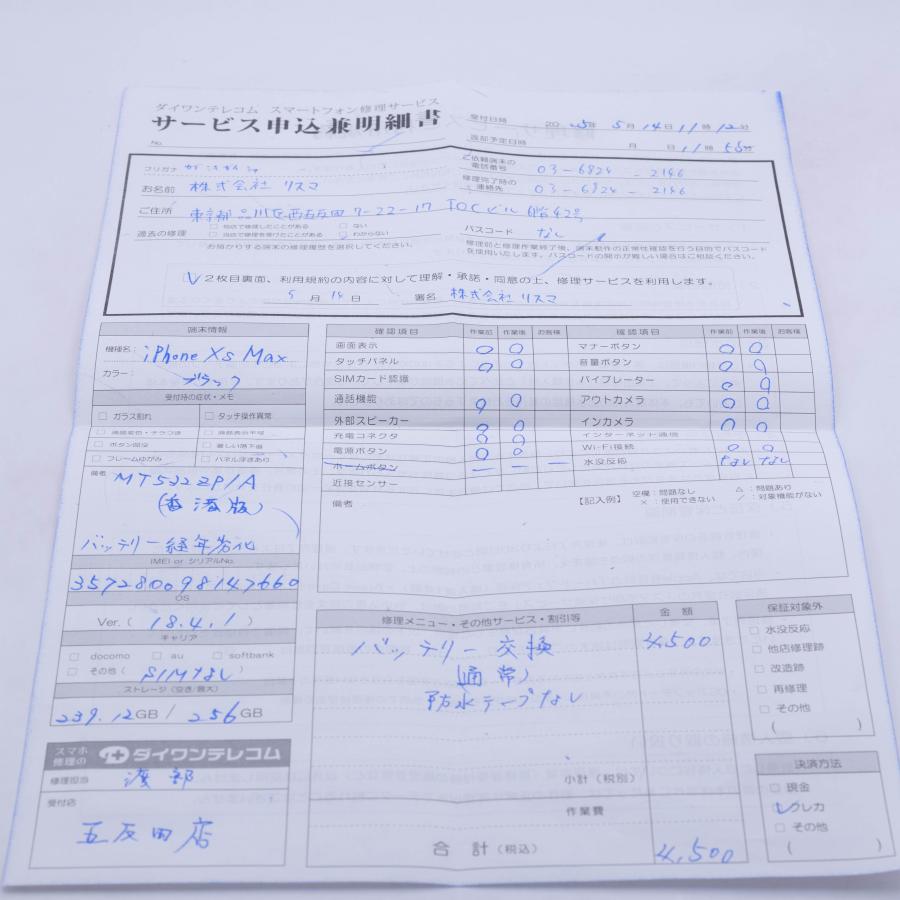 ダイワンテレコム スマートフォン修理サービス
サービス申込兼明細書
No.
受付日時 2025年 5月14日11時12分
返却予定日時 月 日11時58分
フリガナ
お名前 株式会社 リスマ
ご依頼端末の電話番号 03-6824-2146
修理完了時の連絡先 03-6824-2146
ご住所 東京都品川区西五反田7-22-17 TOCビル 6階42号
過去の修理 □ 他店で修理したことがある □ ない
□ 当店で修理を受けたことがある ☑ わからない
お預かりする端末の修理履歴を選択してください。
パスコード なし
修理前と修理作業終了後、端末動作の正常性確認を行う目的でパスコードを使用いたします。パスコードの開示が難しい場合はご相談ください。
☑ 2枚目裏面、利用規約の内容に対して理解・承諾・同意の上、修理サービスを利用します。
5月14日 署名 株式会社 リスマ
端末情報
機種名: iPhone Xs Max
カラー: ブラック
受付時の症状・メモ
□ ガラス割れ □ タッチ操作異常
□ 液晶変色・チラつき □ 液晶表示不可
□ ボタン陥没 □ 著しい落下痕
□ フレームゆがみ □ パネル浮きあり
備考
MT522ZP/A
(香港版)
バッテリー経年劣化
IMEI or シリアルNo.
357280098147660
OS
Ver. ( 18.4.1 )
キャリア
□ docomo □ au □ softbank
□ その他 ( SIMなし )
ストレージ (空き/最大)
239.12GB / 256GB
確認項目 作業前 作業後 お客様 確認項目 作業前 作業後 お客様
画面表示 ○ ○ マナーボタン ○ ○
タッチパネル ○ ○ 音量ボタン ○ ○
SIMカード認識 バイブレーター ○ ○
通話機能 ○ ○ アウトカメラ ○ ○
外部スピーカー ○ ○ インカメラ ○ ○
充電コネクタ ○ ○ インターネット通信
電源ボタン ○ ○ Wi-Fi接続 ○ ○
ホームボタン ー ー ー 水没反応 なし なし
近接センサー
備考
【記入例】 空欄:問題なし △:問題あり
×:使用できない /:対象機能がない
修理メニュー・その他サービス・割引等 金額
バッテリー交換 4,500
(通常)
防水テープなし
小計(税別)
作業費
合計(税込) 4,500
保証対象外
□ 水没反応
□ 他店修理跡
□ 改造跡
□ 再修理
□ その他
( )
決済方法
□ 現金
☑ クレカ
□ その他
( )
スマホ修理の ダイワンテレコム
修理担当 渡部
受付店
五反田店